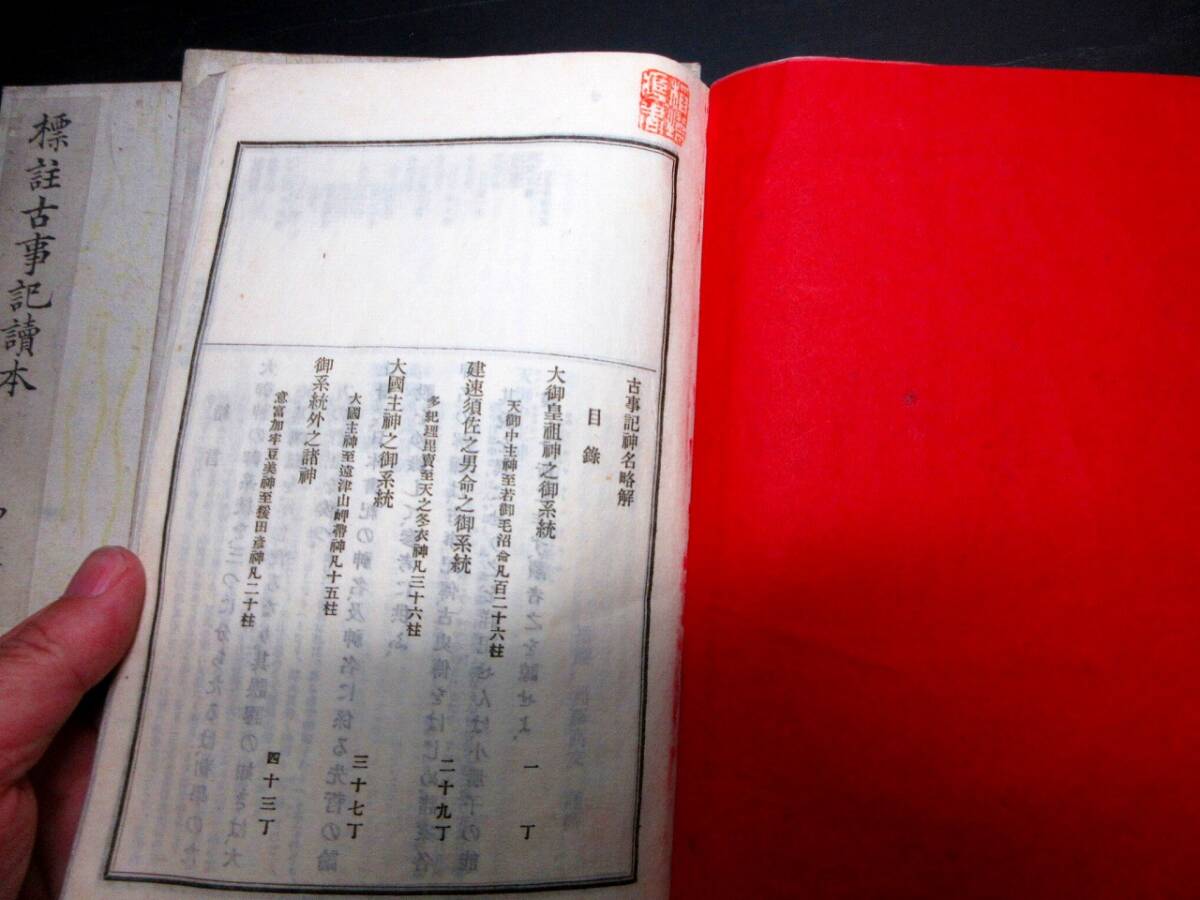 古事記神名略解
目錄
大御皇祖神之御系統
一丁
天御中主神至若御毛沼命凡百二十六柱
建速須佐之男命之御系統
二十九丁
多紀理毘賣至天之冬衣神凡三十六柱
大國主神之御系統
三十七丁
大國主神至遠津山岬帶神凡十五柱
御系統外之諸神
四十三丁
意富加牟豆美神至猨田彥神凡二十柱
標註古事記讀本